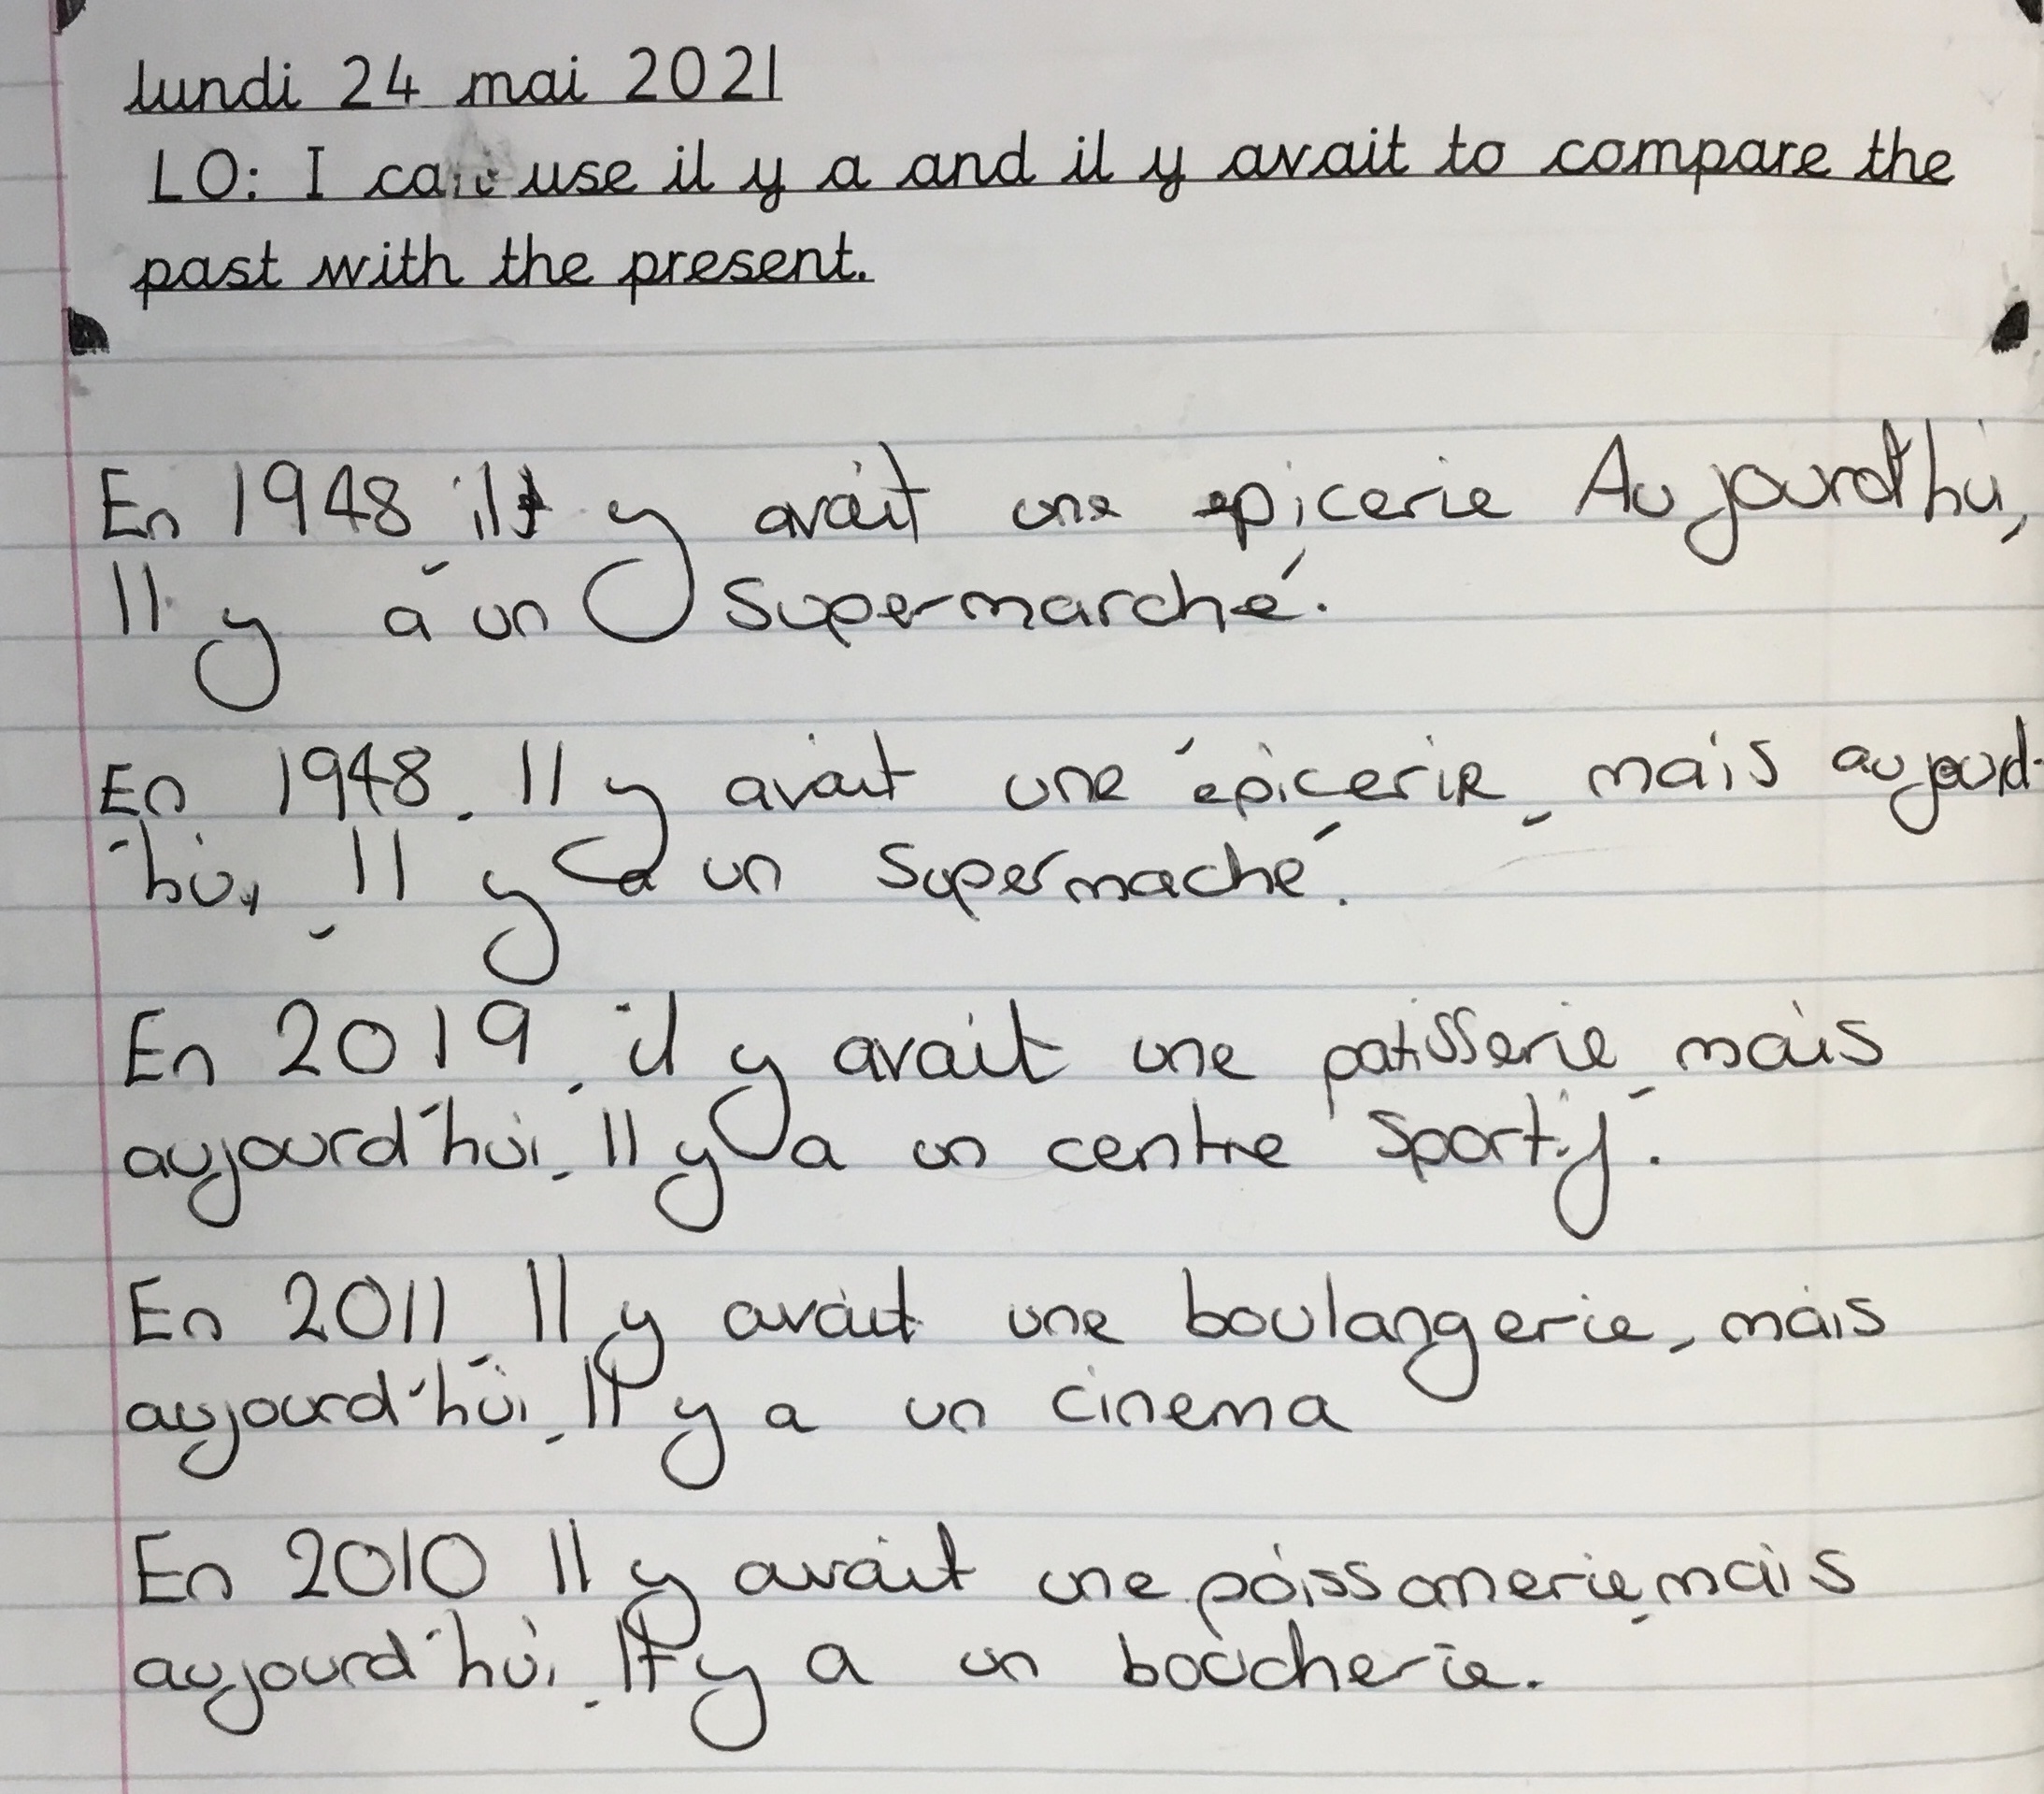 lundi 24 mai 2021
LO: I can use il y a and il y avait to compare the
past with the present.
En 1948, il y avait une epicerie Aujourd'hui,
Il y a un supermarché.
En 1948, Il y avait une épicerie, mais aujourd-
'hui, Il y a un supermaché.
En 2019, il y avait une patisserie, mais
aujourd'hui, Il y a un centre sportif.
En 2011, Il y avait une boulangerie, mais
aujourd'hui, Il y a un cinema
En 2010 Il y avait une poissonerie, mais
aujourd'hui, Il y a un boucherie.